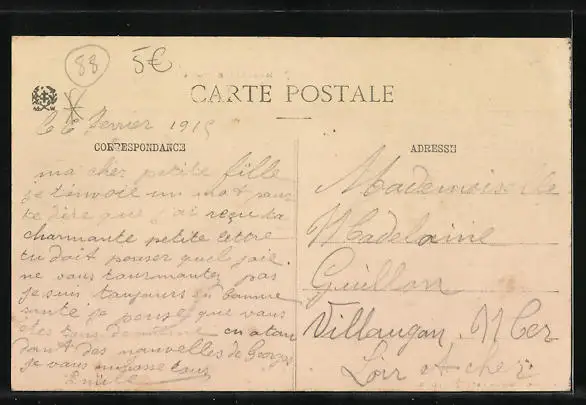 88
5€
CARTE POSTALE
le 6 fevrier 1915
CORRESPONDANCE
ma cher petite fille
je t'envoie un mot pour
te dire que j'ai reçu ta
charmante petite lettre
tu doit penser quel joie.
ne vous tourmentez pas
je suis toujours en bonne
sante je pense que vous
êtes tous de même en atten
dant des nouvelles de Georges
je vous embrasse tous
Emile
ADRESSE
Mademoiselle
Madelaine
Guillon
Villaugon. M Cer
Loir et cher